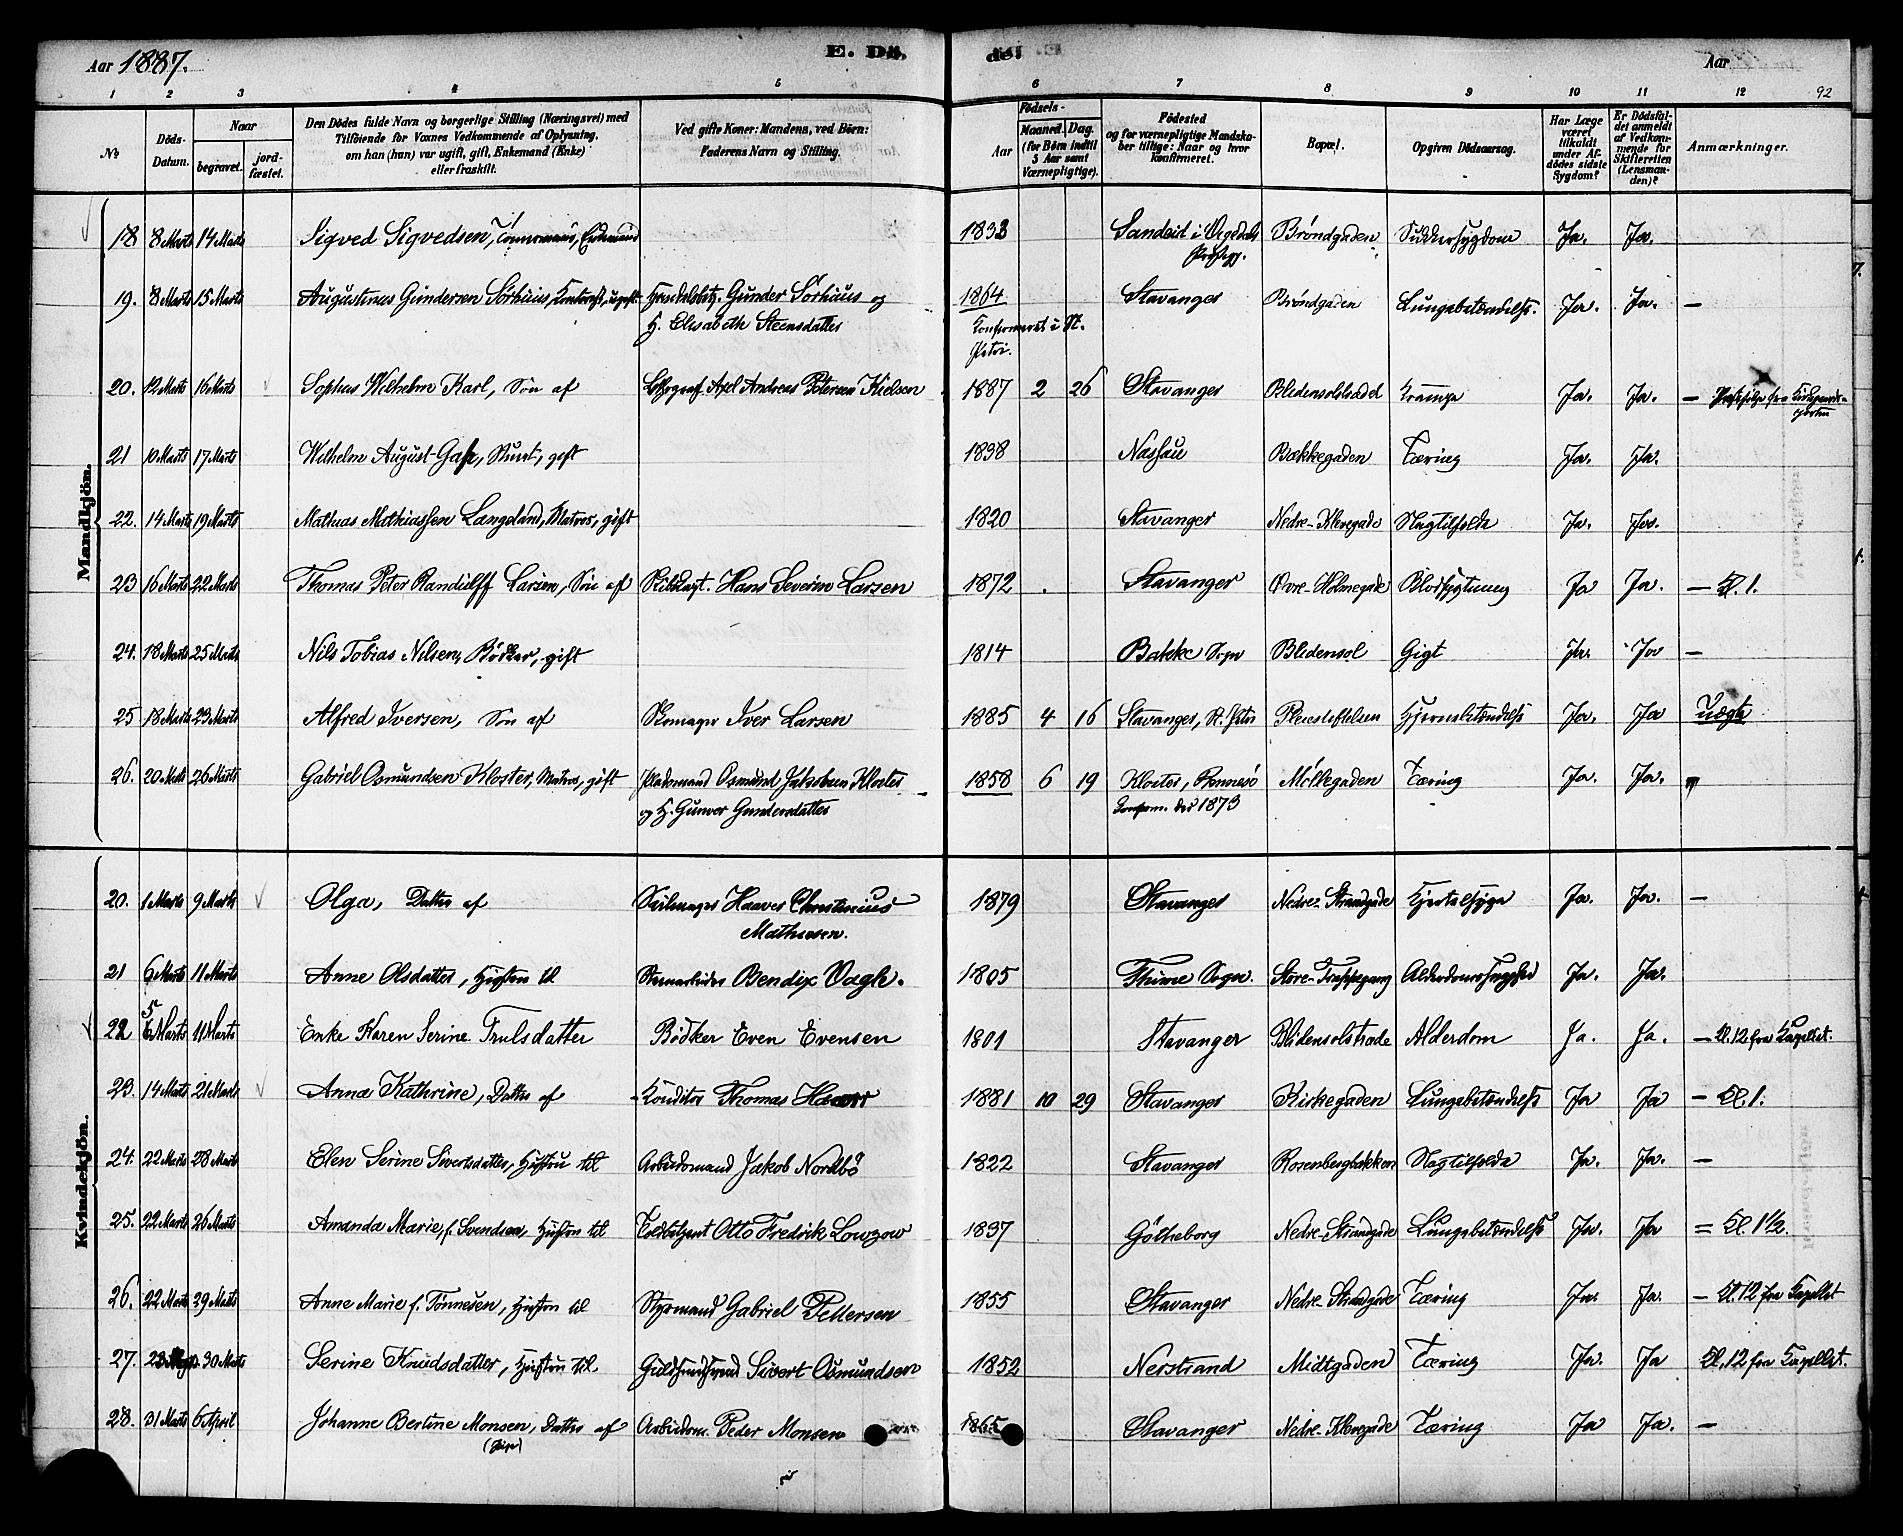 Aar 1887. E. Dö. de! Aar 92
1 2 3 4 5 6 7 8 9 10 11 12
No. Döds-Datum. Naar begravet. jord-fæstet. Den Dödes fulde Navn og borgerlige Stilling (Næringsvei) med Tilföiende for Voxnes Vedkommende af Oplysning, om han (hun) var ugift, gift, Enkemand (Enke) eller fraskilt. Ved gifte Koner: Mandens, ved Börn: Faderens Navn og Stilling. Aar Födsels- Maaned. Dag. (for Börn indtil 5 Aar samt Værnepligtige). Födested og for værnepligtige Mandskaber tillige: Naar og hvor konfirmeret. Bopæl. Opgiven Dödsaarsag. Har Læge været tilkaldt under Afdödes sidste Sygdom? Er Dödsfaldet anmeldt af Vedkommende for Skifteretten (Lensmanden)? Anmærkninger.
Mandkjön.
18 8 Marts 14 Marts Sigved Sigvedsen, Tömmermand, Enkemand 1833 Sandeid i Vigedals Bröndgaden Sukkersygdom Ja. Ja.
Præstegj.
19. 8 Marts 15 Marts Augustinus Gundersen Sörhuus, ugift Handelsbetj. Gunder Sörhuus og 1864 Stavanger Bröndgaden Lungebetændelse. Ja. Ja. —
H. Elisabeth Steensdatter Konfirmeret i St. Petri.
20. 12 Marts 16 Marts Sophus Wilhelm Karl, Sön af Lithograf. Axel Andreas Petersen Kielsen 1887 2 26 Stavanger Blidensolstrædet Krampe Ja. Ja. —
21 10 Marts 17 Marts Wilhelm August gift 1838 Nassau Bakkegaden Tæring Ja. Ja.
22. 14 Marts 19 Marts Mathias Mathiassen Langeland, Matros, gift 1820 Stavanger Nedre-Klevegade Slagtilfælde Ja. Ja.
23 16 Marts 22 Marts Thomas Peter Randulff Larsen, Sön af Hans Severin Larsen 1872 Stavanger Övre-Holmegade Blodstyrtning Ja Ja. — Kl. 1.
24. 18 Marts 25 Marts Nils Tobias Nilsen, Bödker, gift 1814 Bakke Sogn Blidensol Gigt Ja. Ja —
25 18 Marts 23 Marts Alfred Iversen, Sön af Skomager Iver Larsen 1885 4 16 Stavanger, St. Petri Pleiestiftelsen Hjernebetændelse Ja. Ja Uægte
26. 20 Marts 26 Marts Gabriel Osmundsen Kloster, Matros, gift Osmund Jakobsen Kloster 1858 6 19 Kloster, Rennesö Möllegaden Tæring Ja. Ja.
og H. Gunver Gundersdatter Konfirm. 1873
Kvindekjön.
20. 1 Marts 9 Marts Olga, Datter af Seilmager Haaver Christinius 1879 Stavanger Nedre-Strandgade Hjertesyge Ja. Ja. —
Mathiesen.
21 6 Marts 11 Marts Anne Olsdatter, Hustru til Bendix Vagle. 1805 Thime Sogn. Store-Trappegang Alderdomssvaghed Ja. Ja.
22 5 6 Marts 11 Marts Enke Karen Serine Trulsdatter Bødker Even Evensen 1801 Stavanger Blidensolstræde Alderdom Ja. Ja. — Kl. 12 fra Kapellet.
23. 14 Marts 21 Marts Anna Kathrine, Datter af Konditor Thomas Haaar 1881 10 29 Stavanger Kirkegaden Lungebetændelse Ja Ja — Kl. 1.
24. 22 Marts 28 Marts Elen Serine Sivertsdatter, Hustru til Arbeidsmand Jakob Nordbö 1822 Stavanger Rosenbergbakken Slagtilfælde Ja. Ja. —
25. 22 Marts 26 Marts Amanda Marie, f. Svendsen, Hustru til Toldbetjent Otto Fredrik Lowzow 1837 Götheborg Nedre-Strandgade Lungebetændelse Ja. Ja = Kl. 1½.
26. 22 Marts 29 Marts Anne Marie f. Tönnesen, Hustru til Styrmand Gabriel Pettersen 1855 Stavanger Nedre Strandgade Tæring Ja. Ja. — Kl. 12 fra Kapellet
27. 23 30 Marts Serine Knudsdatter, Hustru til Guldsmedsvend Sivert Osmundsen 1852 Nerstrand Midtgaden Tæring Ja. Ja Kl. 12 fra Kapellet.
28. 31 Marts 6 April Johanne Bertine Monsen, Datter af Arbeidsm. Peder Monsen 1865 Stavanger Nedre-Klevegade Tæring Ja Ja. —